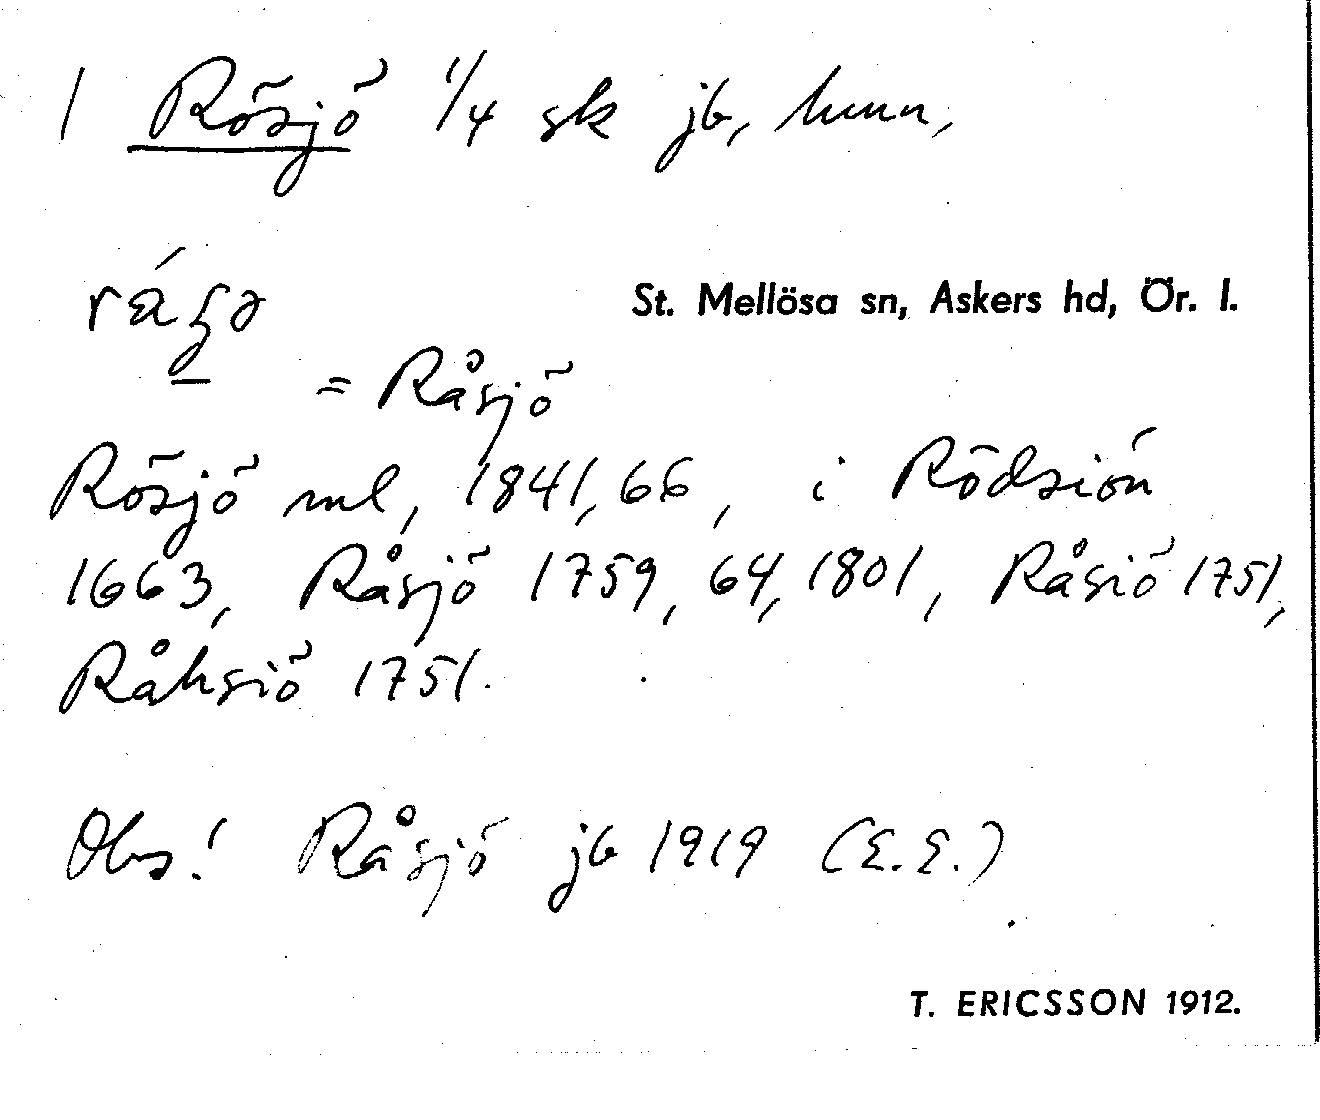 1 Rösjö 1/4 sk jb, hmn,
St. Mellösa sn, Askers hd, Ör. l.
= Råsjö
Rösjö ml, 1841, 66, i Rödsión
1663, Råsjö 1759, 64, 1801, Råsiö 1751,
Råhsiö 1751.
Obs! Råsjö jb 1919 (E.E.)
T. ERICSSON 1912.